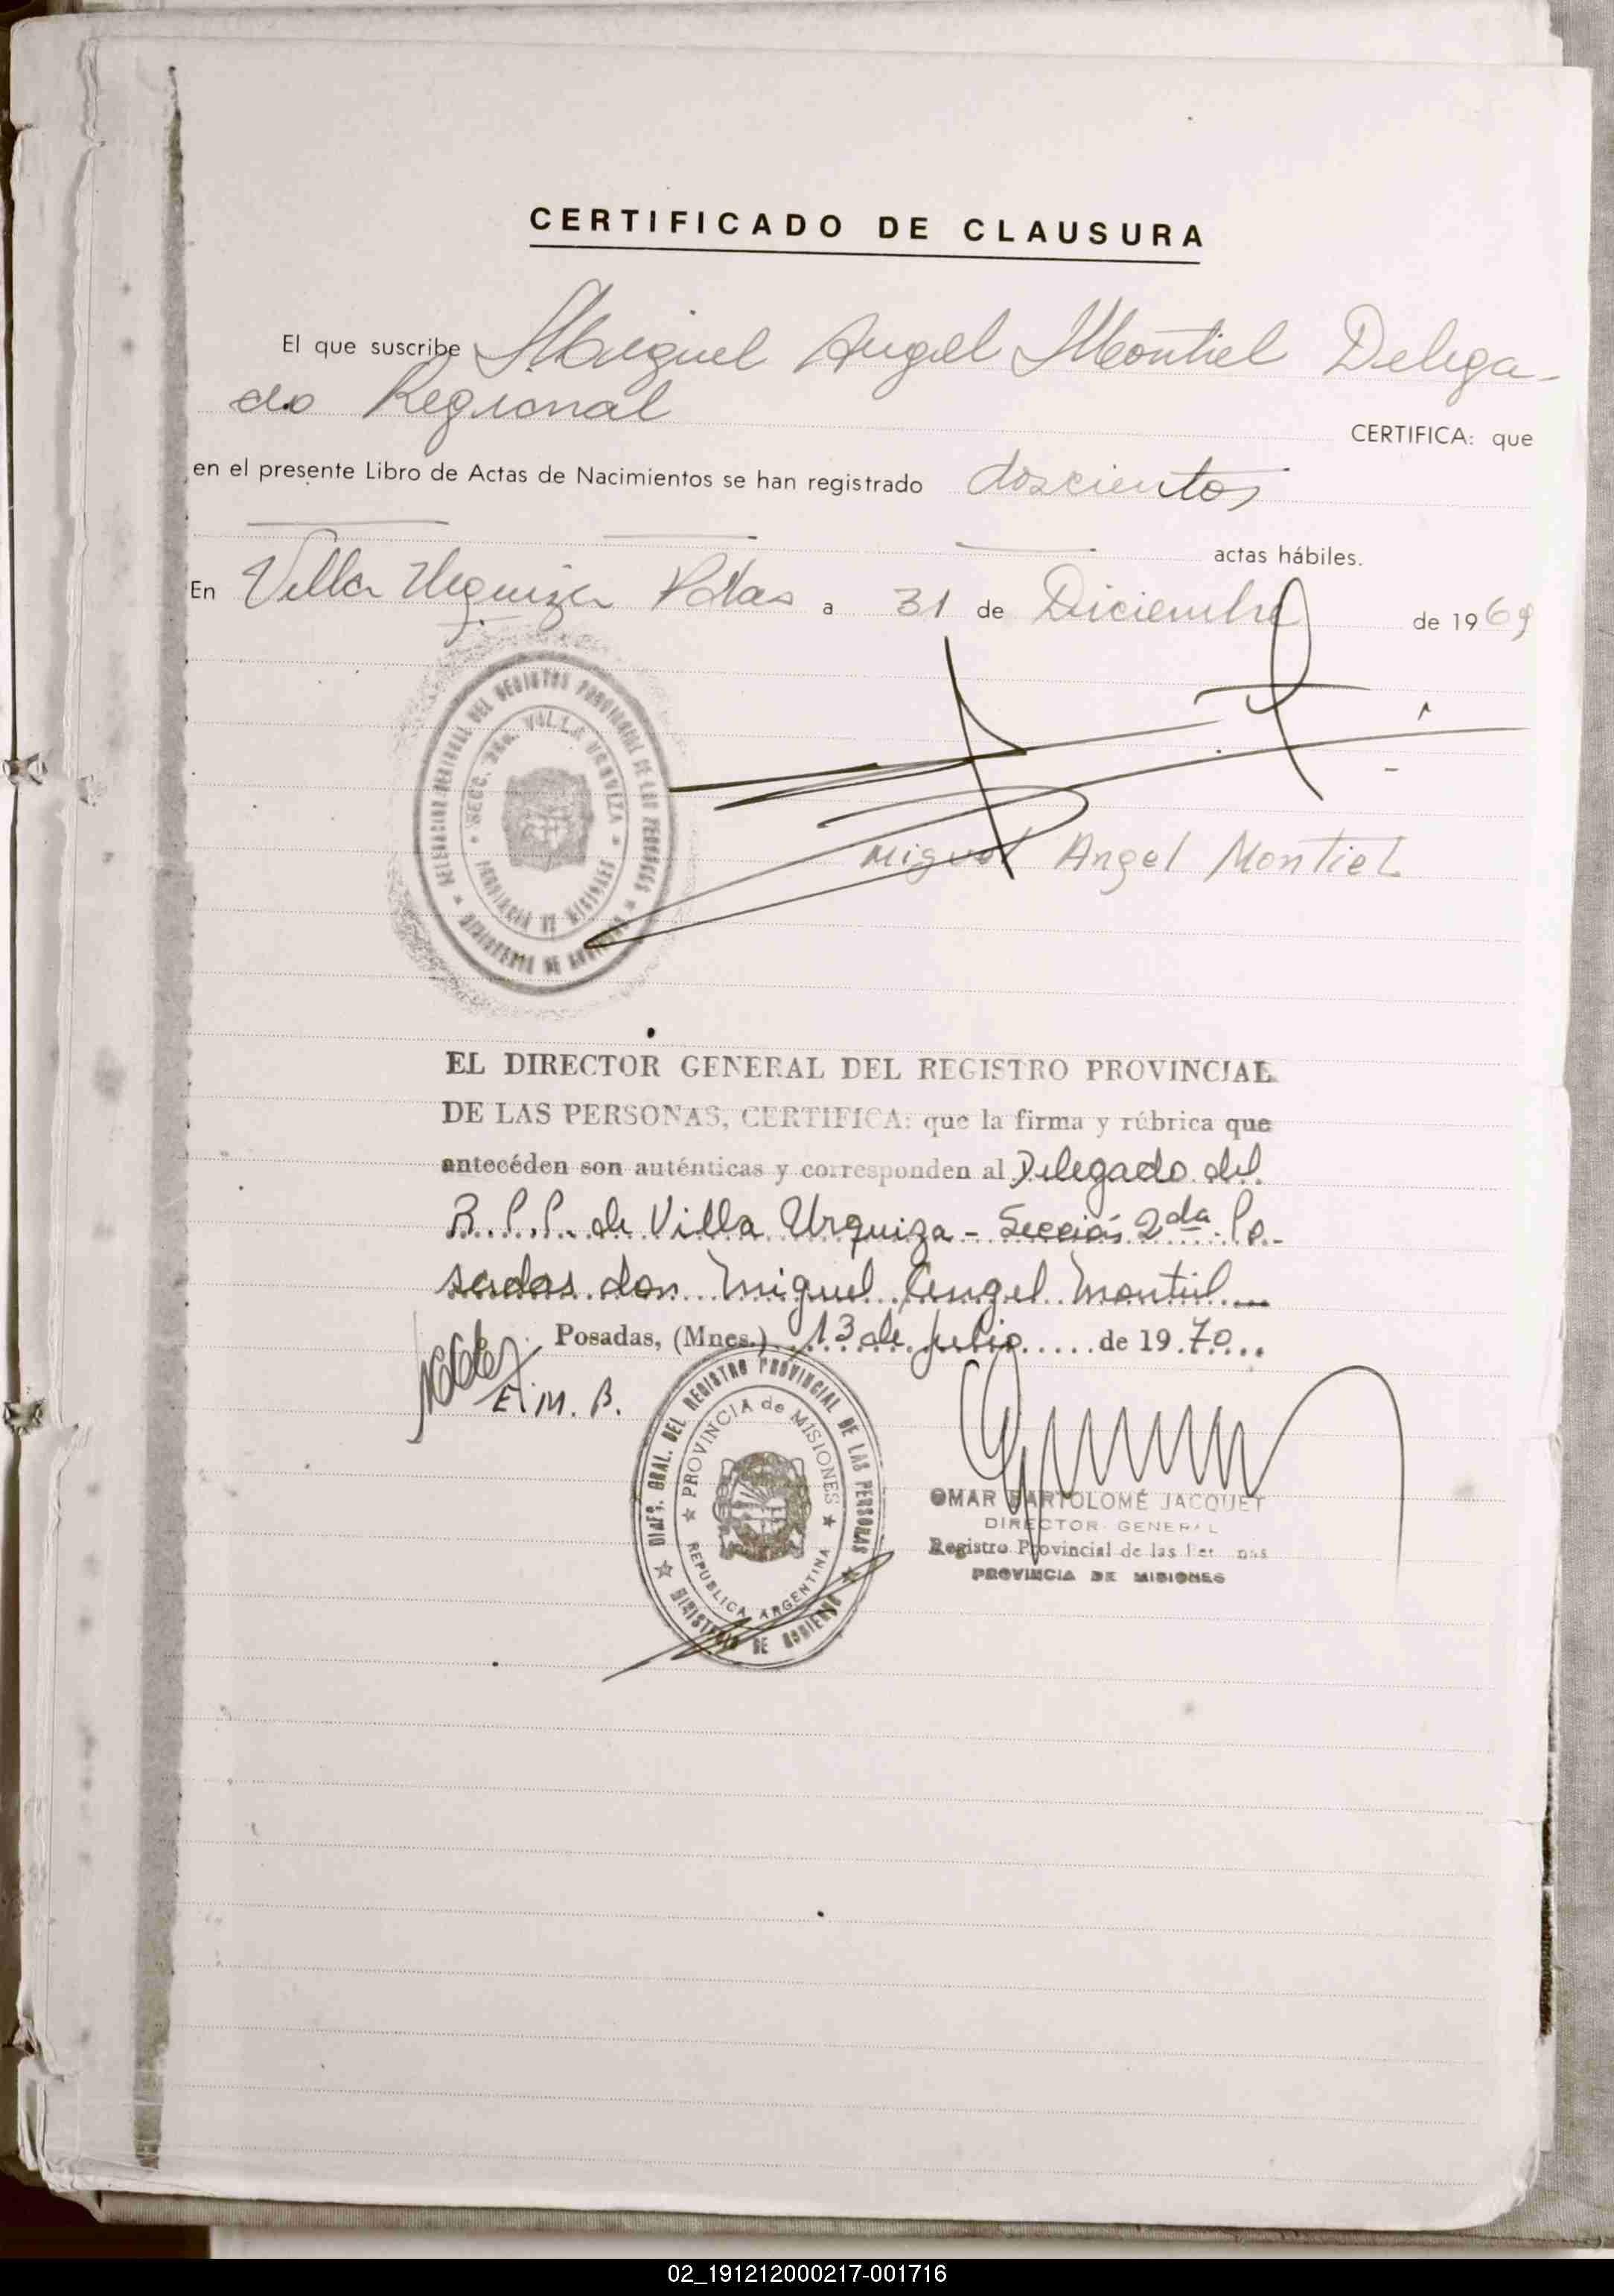 CERTIFICADO DE CLAUSURA
El que suscribe Miguel Angel Montiel Delega-
do Regional
CERTIFICA: que
en el presente Libro de Actas de Nacimientos se han registrado doscientos
actas hábiles.
En Villa Urquiza Pdas a 31 de Diciembre de 1969
DELEGACION REGIONAL DEL REGISTRO PROVINCIAL DE LAS PERSONAS
SECC. 2da. VILLA URQUIZA
PROVINCIA DE MISIONES
MINISTERIO DE GOBIERNO
Miguel Angel Montiel
EL DIRECTOR GENERAL DEL REGISTRO PROVINCIAL
DE LAS PERSONAS, CERTIFICA: que la firma y rúbrica que
antecéden son auténticas y corresponden al Delegado del
R.P.P. de Villa Urquiza - Sección 2da. Po-
sadas don Miguel Angel Montiel
Posadas, (Mnes.) 13 de Julio de 1970
E.M.B.
DIREC. GRAL. DEL REGISTRO PROVINCIAL DE LAS PERSONAS
PROVINCIA de MISIONES
REPUBLICA ARGENTINA
MINISTERIO DE GOBIERNO
OMAR BARTOLOMÉ JACQUET
DIRECTOR GENERAL
Registro Provincial de las Personas
PROVINCIA DE MISIONES
02_191212000217-001716